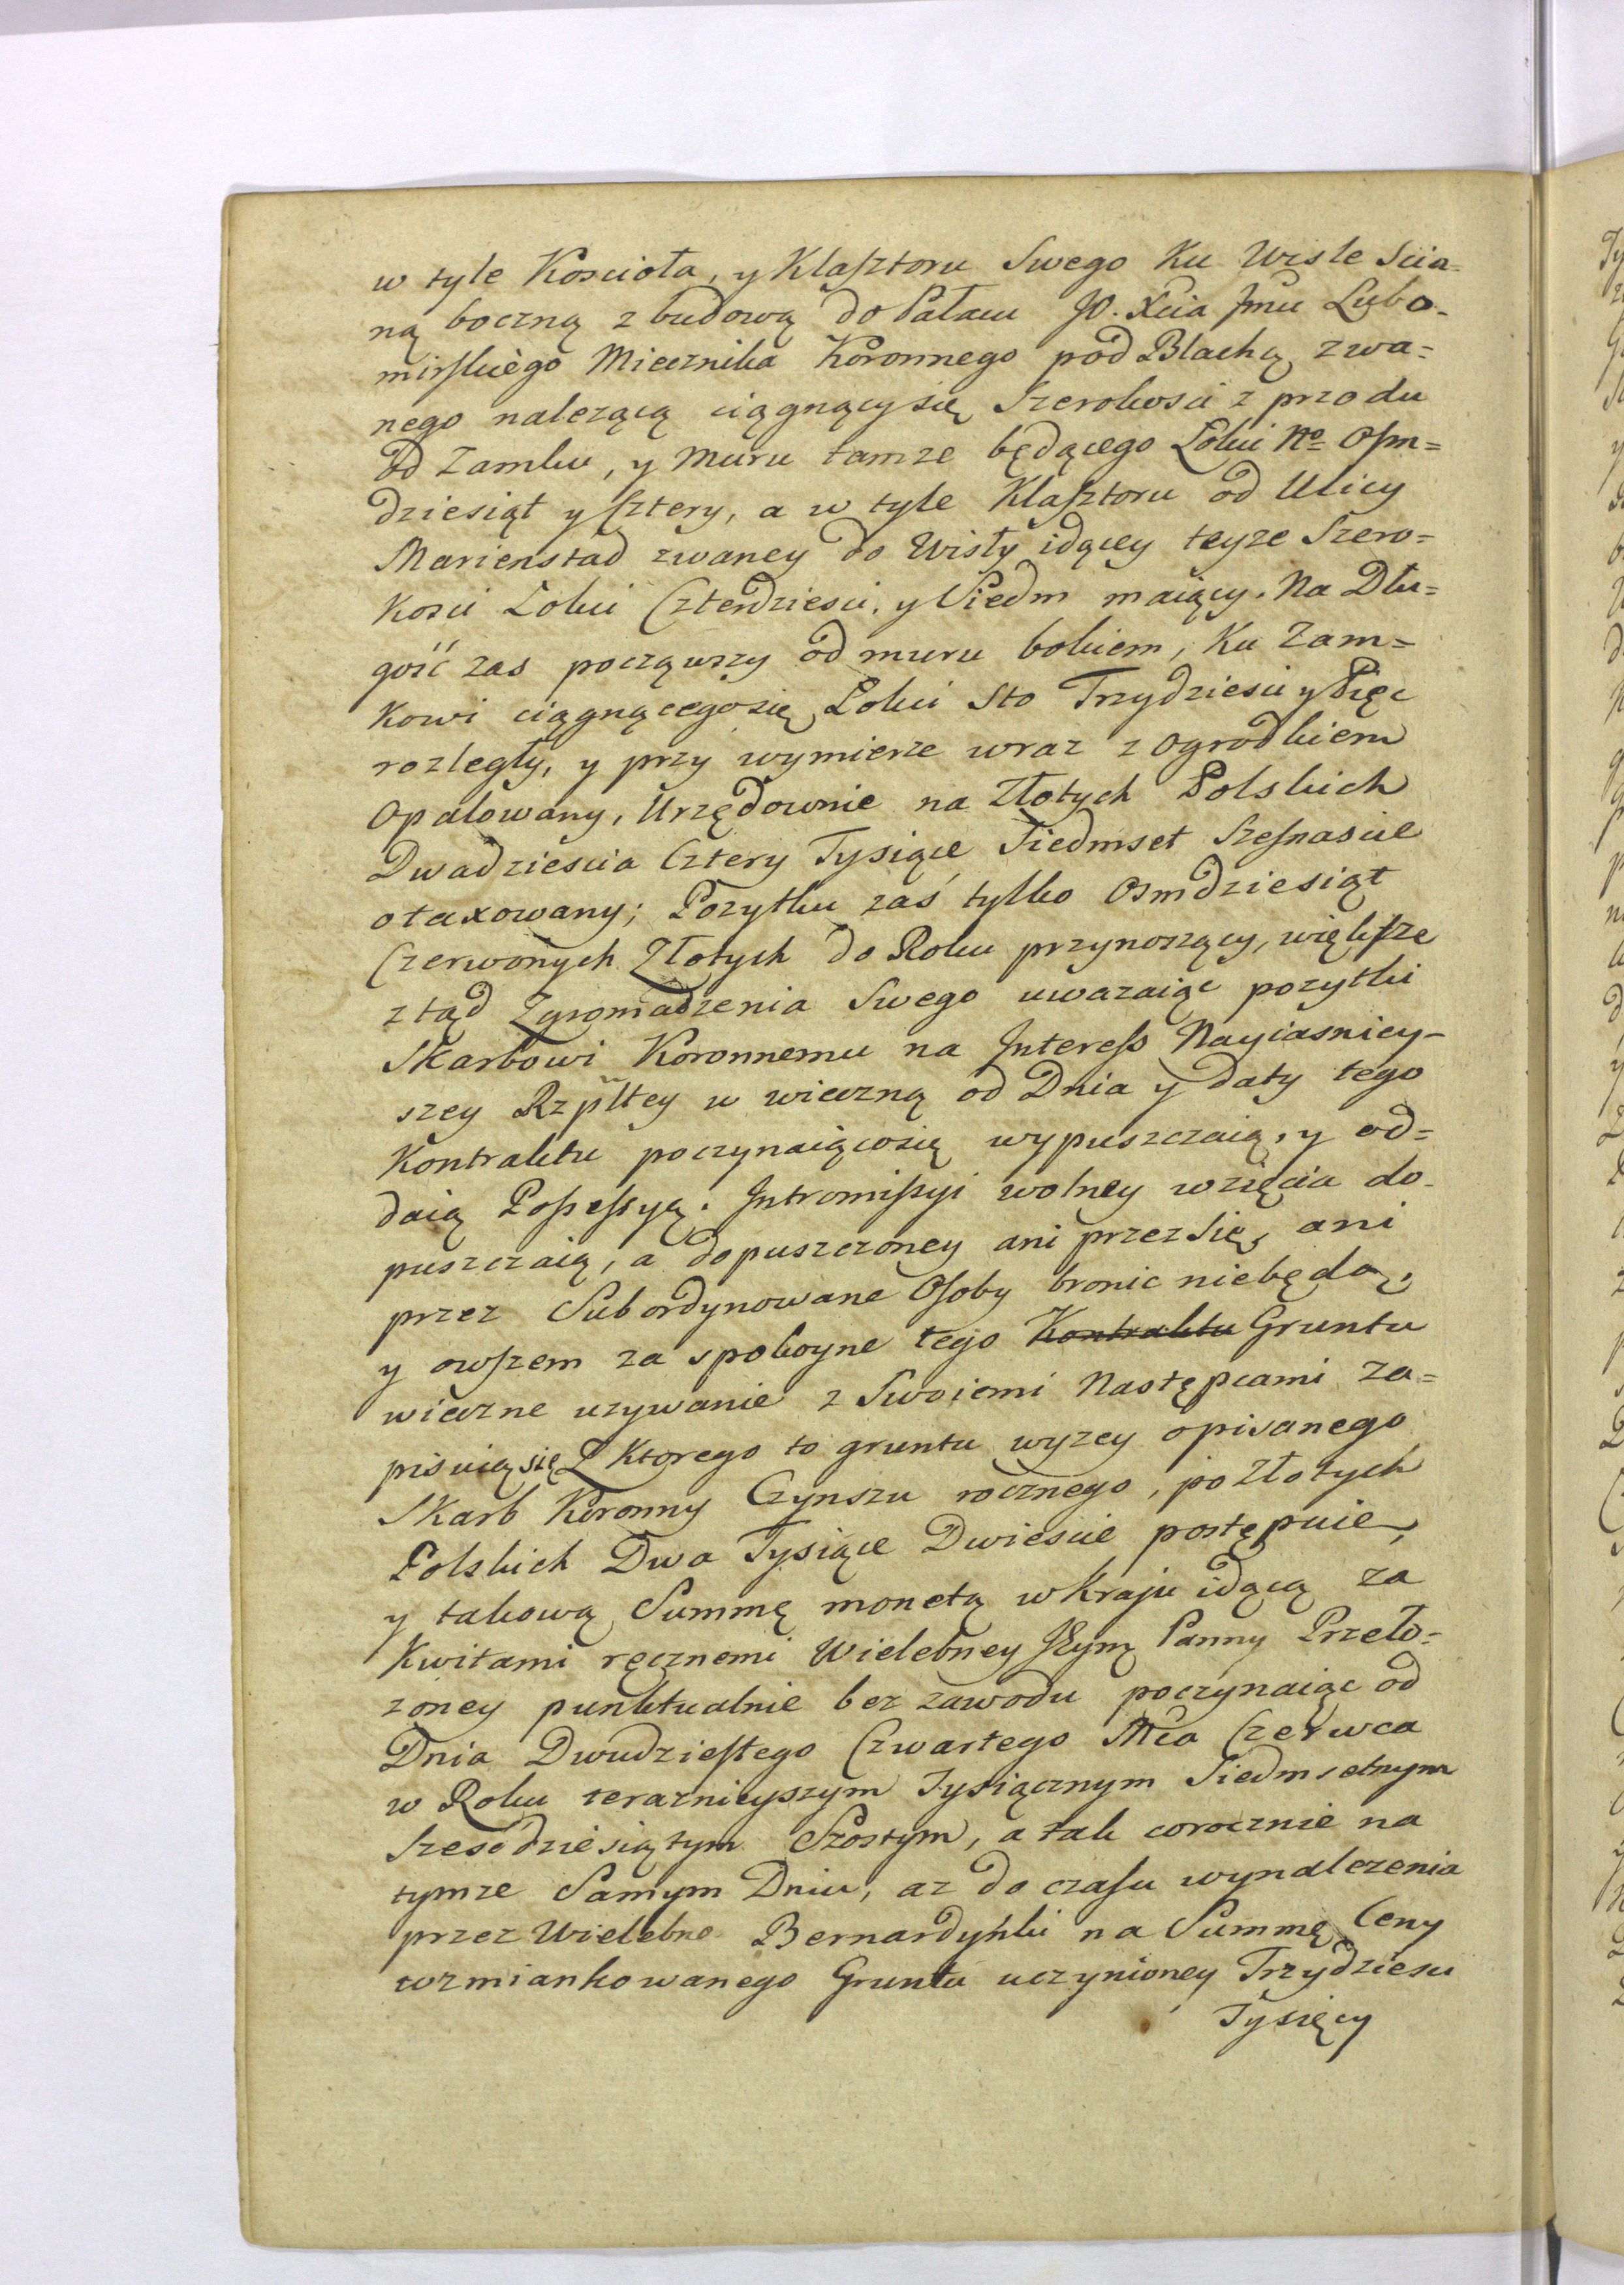 w tyle Koscioła, y Klasztoru Swego Ku Wisle Scia-
ną boczną z budową do Pałacu JO. Xcia Jmci Lubo-
mirskiego Miecznika Koronnego pod Blachą zwa=
nego nalezącą ciągnący się Szerokosci z przodu
od Zamku, y Muru tamze będącego Łokci No Osm=
dziesiąt y Cztery, a w tyle Klasztoru od Ulicy
Marienstad zwaney do Wisły idącey teyze Szero=
Kosci Łokci Czterdziesci, y Siedm maiący. Na Dłu=
gość zas począwszy od muru bokiem, Ku Zam=
Kowi ciągnącego się Łokci Sto Trzydziesci y Pięc
rozległy, y przy wymierze wraz z Ogrodkiem
Opalowany, Urzędownie na Złotych Polskich
Dwadziescia Cztery Tysiące Siedmset Szesnascie
otaxowany; Pozytku zaś tylko Osmdziesiąt
Czerwonych Złotych do Roku przynoszący, większe
ztąd Zgromadzenia Swego uwazaiąc pozytki
Skarbowi Koronnemu na Interess Nayiasniey-
szey Rzpltey w wieczną od Dnia y daty tego
Kontraktu poczynaiącosię wypuszczaią, y od=
daią Possessyą. Intromissyi wolney wzięcia do-
puszczaią, a dopuszczoney ani przez Się, ani
przez Subordynowane Osoby bronic niebędą,
y owszem za spokoyne tego Kontraktu Gruntu
wieczne uzywanie z Swoiemi Następcami za=
pisuią się Z Ktorego to gruntu wyzey opisanego
Skarb Koronny Czynszu rocznego, po Złotych
Polskich Dwa Tysiące Dwiescie postępuie,
y takową Summę monetą w Kraju idącą za
Kwitami ręcznemi Wielebney JEymę Panny Przeło=
zoney punktualnie bez zawodu poczynaiąc od
Dnia Dwudziestego Czwartego Mca Czerwca
w Roku terazniejszym Tysiącznym Siedmsetnym
Szesćdziesiątym Szostym, a tak corocznie na
tymze Samym Dniu, az do czasu wynalezenia
przez Wielebne Bernardynki na Summę Ceny
wzmiankowanego Gruntu uczynioney Trzydziesci
Tysięcy